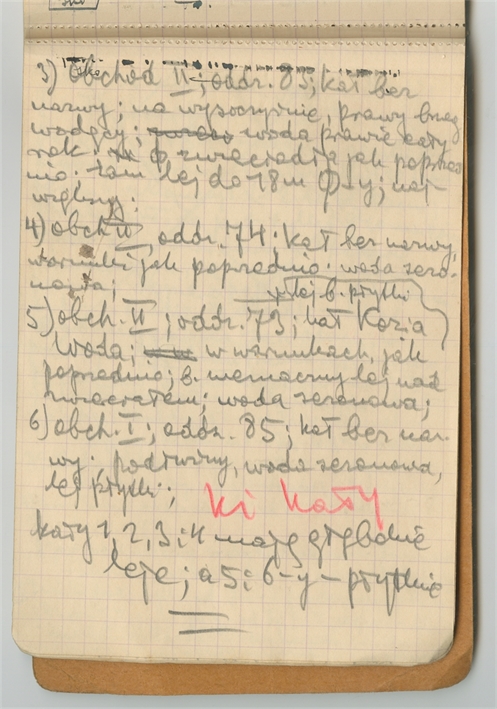 3) Obchód II; oddz. 85; kąt bez
nazwy; na wysoczyźnie, prawy brzeg
wodący; woda prawie cały
rok; φ zwierciadła jak poprzed
nio. tam lej do 18 m φ-y; naj
większy;
4) obch. II, oddz. 74; kąt bez nazwy,
warunki jak poprzednio. woda sezo-
nowa;
lej b. płytki
5) obch. II; oddz. 73; kąt Kozia
Woda; w warunkach, jak
poprzednio; b. nieznaczny lej nad
zwierciadłem; woda sezonowa;
6) obch. I; oddz. 85; kąt bez naz-
wy. podziemny, woda sezonowa,
lej płytki;
ki kąty
Kąty 1, 2, 3 i 4 mają głębokie
leje; a 5 i 6-y - płytkie